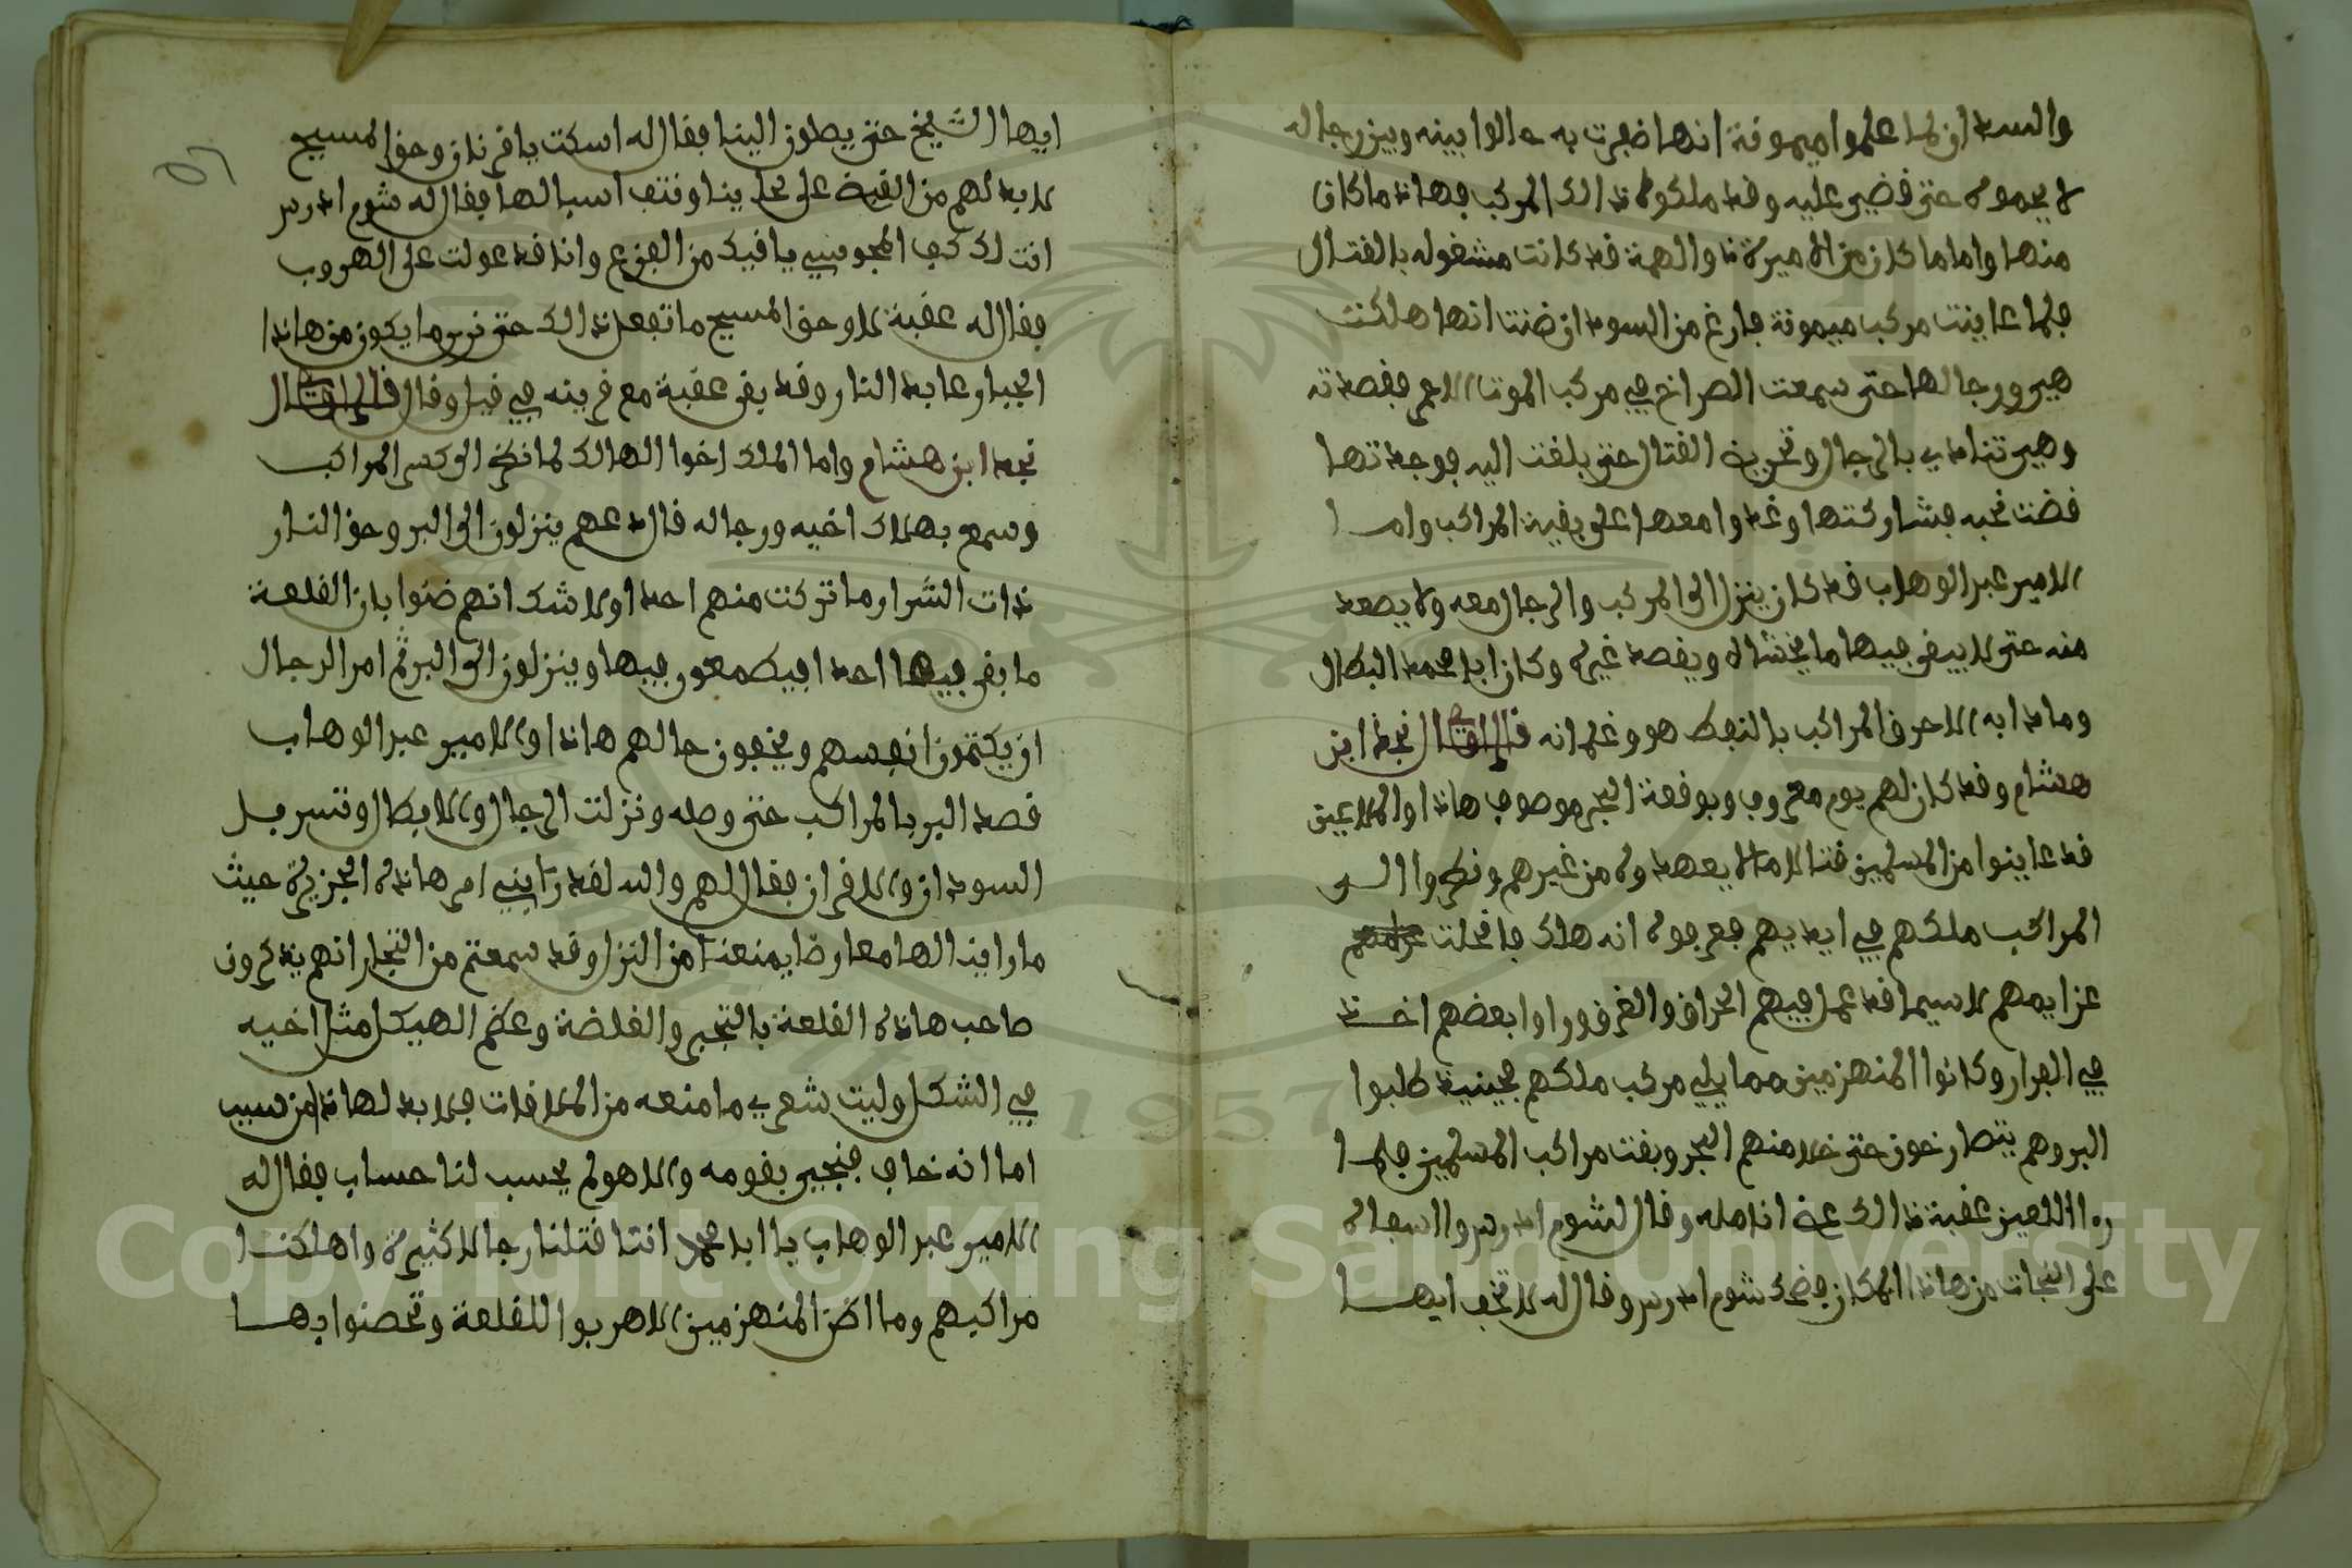 والسودان لما علموا ميمونة انها ضفرت به حالوا بينه وبين رجاله
لا يحموه حتى قضى عليه وقد ملكوه ذالك المركب فهاذا ما كان
منها واما ما كان من الاميرة ذا والهمة قد كانت مشغوله بالقتال
فلما عاينت مركب ميمونة فارغ من السودان ضنت انها هلكت
هي ورجالها حتى سمعت الصراخ في مركب الموتا الاعى فقصدته
وهي تنادي بالرجال وتحريض القتال حتى بلغت اليه فوجدتها
قضت نحبه فشاركتها وغدوا معها على بقية المراكب واما
الامير عبد الوهاب قد كان ينزل الى المركب والرجال معه ولا يصعد
منه حتى لا يبقى فيها ما يخشاه ويقصد غيره وكان ابا محمد البطال
وما دابه الا حرق المراكب بالنفط هو وغلمانه قال نجد ابن
هشام وقد كان لهم يوم معروف وبوقعة البحر موصوف هاذا والملاعين
قد عاينوا من المسلمين قتالا ما لا يعهدوه من غيرهم ونظروا الى
المراكب ملكهم في ايديهم فعرفوه انه هلك فانحلت
عزايمهم لا سيما قد عمل فيهم الحراق والغرق وراوا بعضهم اخذ
في الفرار وكانوا المنهزمين مما يلي مركب ملكهم فحينيذ طلبوا
البر وهم يتصارخون حتى خلا منهم البحر وبقت مراكب المسلمين فلما
را اللعين عقبة ذالك عض انامله وقال لشومدرس والسعاه
على النجات من هاذا المكان فضحك شومدرس وقال له لا تخف ايها
ايها الشيخ حتى يصلون الينا فقال له اسكت يا قرنان وحق المسيح
لا بد لهم من القبض على لحاينا ونتف اسبالها فقال له شومدرس
انت لك كيف المجوسي يا فيك من الفزع وانا قد عولت على الهروب
فقال له عقبة لا وحق المسيح ما تفعل ذالك حتى نرى ما يكون من هاذا
الجبار عابد النار وقد بقى عقبة مع قرينه في قيل وقال قال
نجد ابن هشام واما الملك اخوا الهالك لما نظر الى كسر المراكب
وسمع بهلاك اخيه ورجاله قال دعهم ينزلون الى البر وحق النار
ذات الشرار ما تركت منهم احدا ولا شك انهم ضنوا بان القلعة
ما بقى فيها احدا فيطمعون فيها وينزلون الى البر ثم امر الرجال
ان يكتمون انفسهم ويخفون حالهم هاذا والامير عبد الوهاب
قصد البر بالمراكب حتى وصله ونزلت الرجال والابطال وتسربل
السودان والاقران فقال لهم والله لقد رابني امر هاذه الجزيرة حيث
ما راينا لها معارضا يمنعنا من النزل وقد سمعتم من التجار انهم يذكرون
صاحب هاذه القلعة بالتجبر والغلضة وعظم الهيكل مثل اخيه
في الشكل وليت شعري ما منعه من الملاقات فلا بد لهاذا من سبب
اما انه خاف فنجى بقومه والا هو لم يحسب لنا حساب فقال له
الامير عبد الوهاب يا ابا محمد انتا قتلنا رجالا كثيرة واهلكنا
مراكبهم وما اضن المنهزمين الا هربوا للقلعة وتحصنوا بها
Copyright © King Saud University
1957